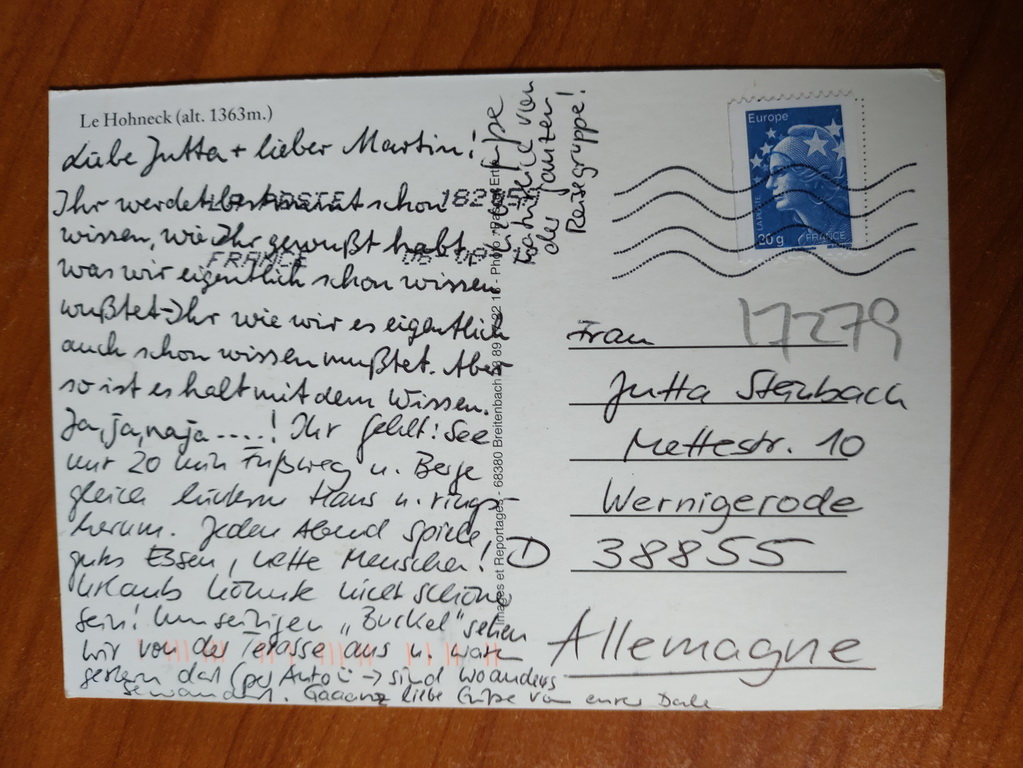 Le Hohneck (alt. 1363m.)
Liebe Jutta + lieber Martin!
Ihr werdet bestimmt schon
wissen, wie Ihr gewußt habt
was wir eigentlich schon wissen
wußtet Ihr wie wir es eigentlich
auch schon wissen mußtet. Aber
so ist es halt mit dem Wissen.
Ja, ja, naja ....! Ihr fehlt! See
nur 20 min Fußweg u. Berge
gleich hinterm Haus u. rings-
herum. Jeden Abend Spiele,
gutes Essen, nette Menschen!
Urlaub könnte nicht schöner
sein! Umseitigen „Buckel“ sehen
wir von der Terasse aus u. waren
gestern dort (per Auto) → sind woanders
gewandert. Gaaanz liebe Grüße von eurer
Liebe Grüße
natürlich von
der ganzen
Reisegruppe!
LA POSTE
FRANCE
Images et Reportages - 68380 Breitenbach
Europe
LA POSTE
20g FRANCE
17279
Frau
Jutta
Mettestr. 10
Wernigerode
D 38855
Allemagne